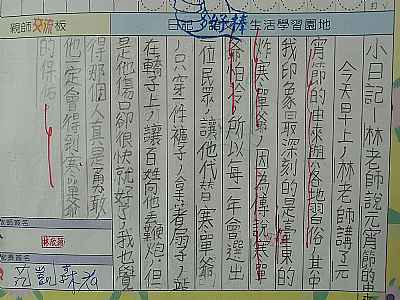 親師交流板
日記 多好棒 生活學習園地
小日記-林老師說元宵節的由來
今天早上,林老師講了元
宵節的由來與各地習俗,其中
我印象最深刻的是臺東的
炸寒單爺,因為傳說寒單
爺怕冷,所以每一年會選出
一位民眾,讓他代替寒單爺
,只穿一件褲子,拿著扇子,站
在轎子上,讓百姓向他丟鞭炮,但
是他傷口卻很快就好了,我也覺
得那個人真是勇敢
他一定會得到寒單爺
的保佑
簽名